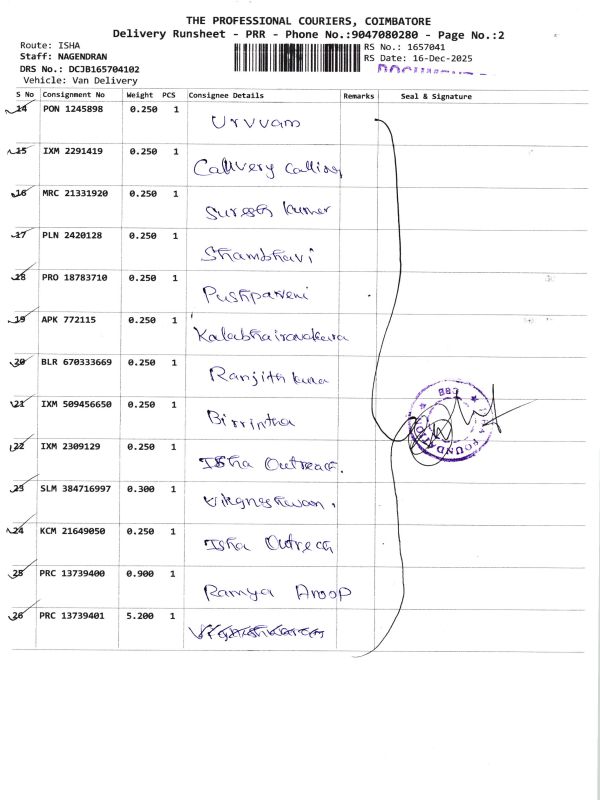 THE PROFESSIONAL COURIERS, COIMBATORE
Delivery Runsheet - PRR - Phone No.:9047080280 - Page No.:2
Route: ISHA
Staff: NAGENDRAN
DRS No.: DCJB165704102
Vehicle: Van Delivery
RS No.: 1657041
RS Date: 16-Dec-2025
S No Consignment No Weight PCS Consignee Details Remarks Seal & Signature
14 PON 1245898 0.250 1 Urvvam
15 IXM 2291419 0.250 1
16 MRC 21331920 0.250 1 Suresh Kumar
17 PLN 2420128 0.250 1 Shambhavi
18 PRO 18783710 0.250 1 Pushpaveni
19 APK 772115 0.250 1
20 BLR 670333669 0.250 1 Ranjith
21 IXM 509456650 0.250 1 Birrintha
22 IXM 2309129 0.250 1 Isha Outreach.
23 SLM 384716997 0.300 1
24 KCM 21649050 0.250 1 Isha Outrech
25 PRC 13739400 0.900 1 Ramya Anoop
26 PRC 13739401 5.200 1